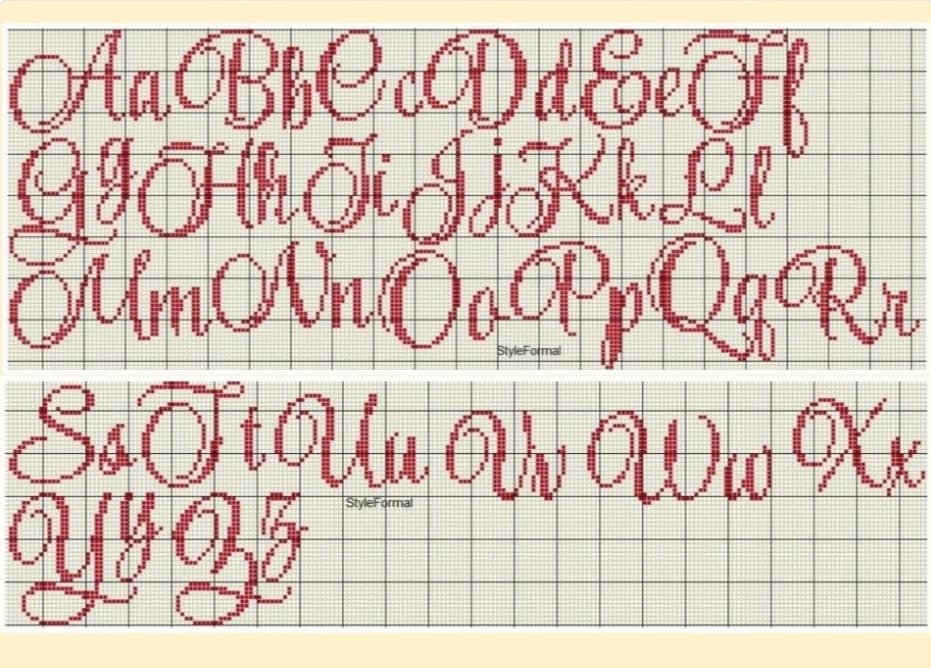 Aa Bb Cc Dd Ee Ff
Gg Hh Ii Jj Kk Ll
Mm Nn Oo Pp Qq Rr
StyleFormal
Ss Tt Uu Vv Ww Xx
StyleFormal
Yy Zz